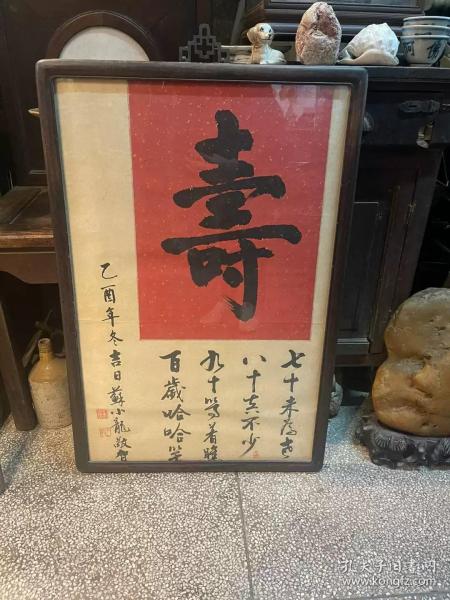 壽
七十未為老
八十真不少
九十篤着瞧
百歲哈哈笑
乙酉年冬吉日蘇小龍敬賀
孔夫子旧书网
www.kongfz.com